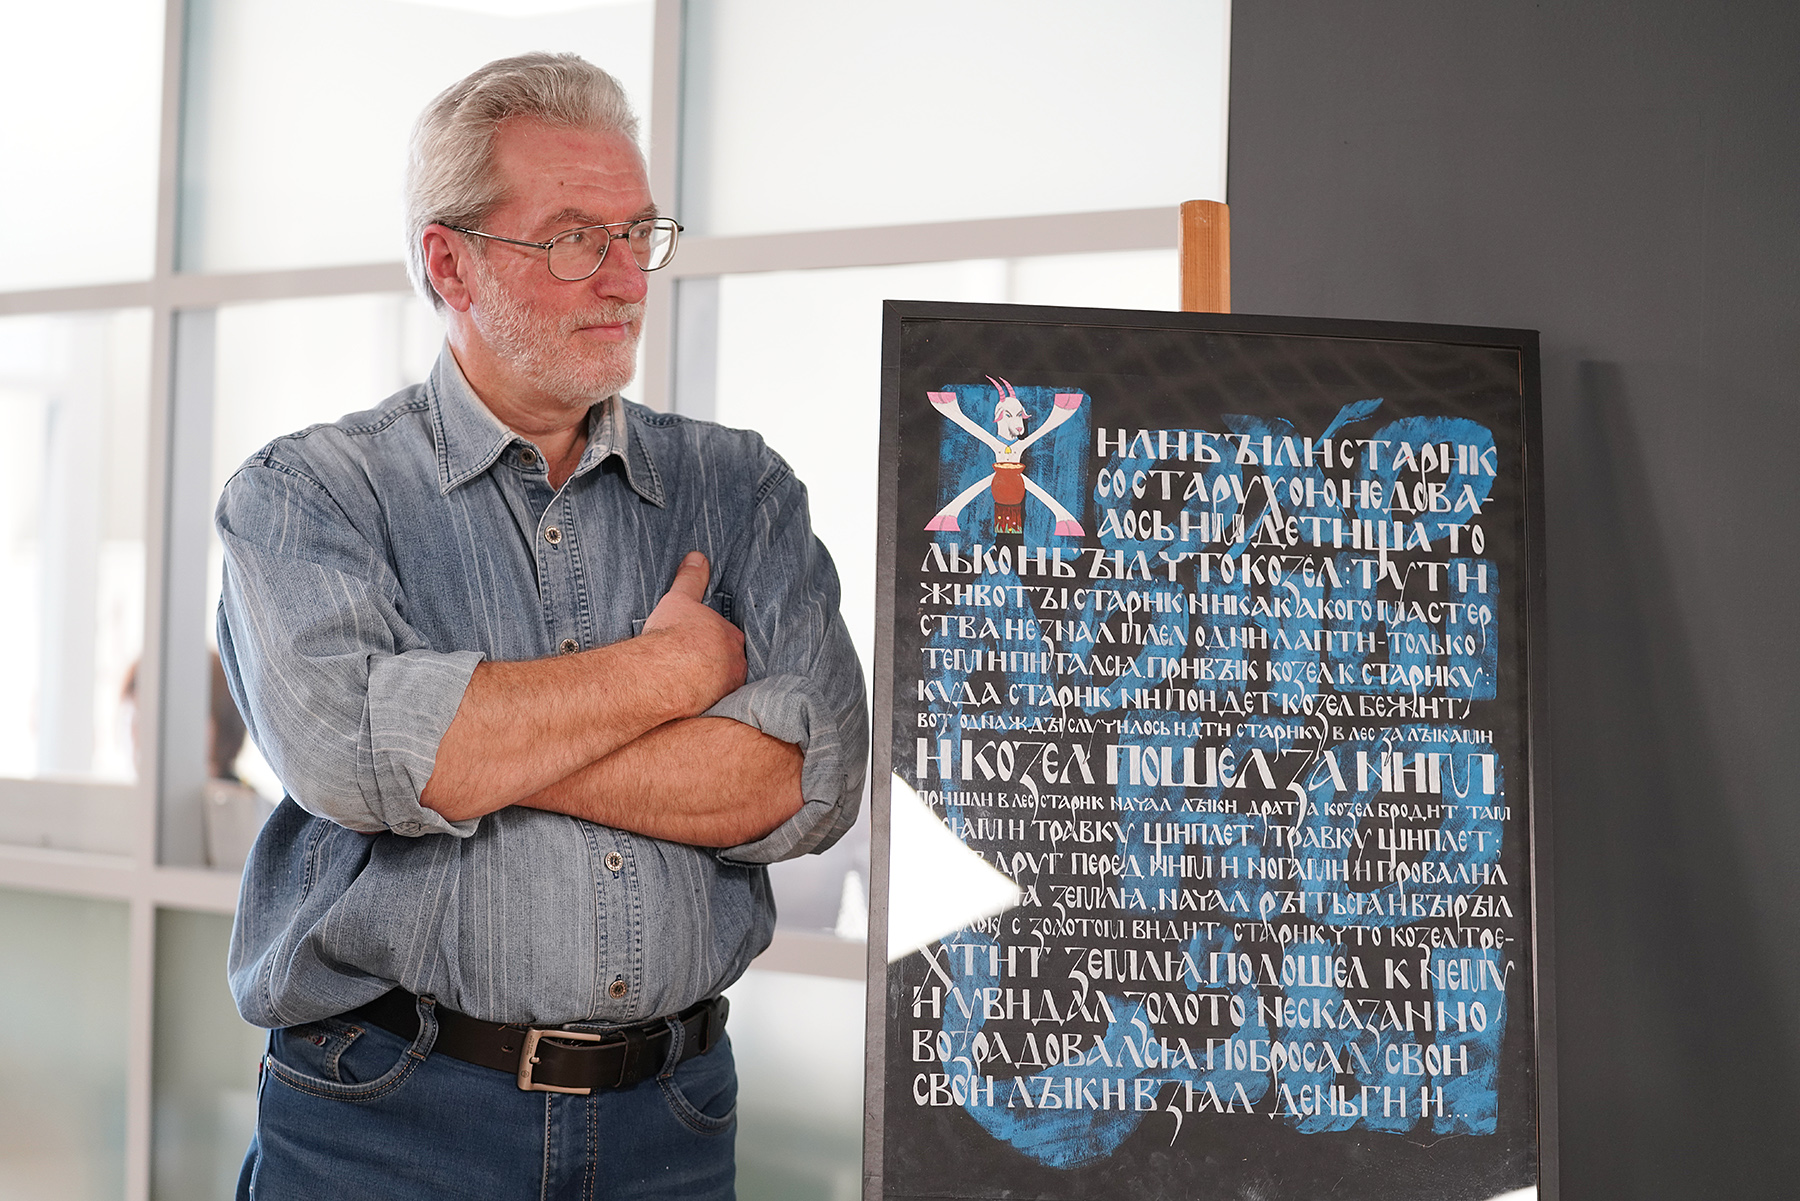 ЖИЛИ БЫЛИ СТАРИК
СО СТАРУХОЮ, НЕ ДОВА-
ЛОСЬ ИМ ДЕТИЩА ТО
ЛЬКО И БЫЛ, ЧТО КОЗЁЛ: ТУТ И
ЖИВОТЫ СТАРИК НИКАКАКОГО МАСТЕР
СТВА НЕ ЗНАЛ ПЛЕЛ ОДНИ ЛАПТИ - ТОЛЬКО
ТЕМ И ПИТАЛСЯ. ПРИВЫК КОЗЁЛ К СТАРИКУ:
КУДА СТАРИК НИ ПОЙДЕТ КОЗЁЛ БЕЖИТ.
ВОТ ОДНАЖДЫ СЛУЧИЛОСЬ ИДТИ СТАРИКУ В ЛЕС ЗА ЛЫКАМИ
И КОЗЁЛ ПОШЁЛ ЗА НИМ.
ПРИШЛИ В ЛЕС СТАРИК НАЧАЛ ЛЫКИ ДРАТЬ А КОЗЕЛ БРОДИТ ТАМ
И СЯМ И ТРАВКУ ЩИПЛЕТ ТРАВКУ ЩИПЛЕТ:
ВДРУГ ПЕРЕД НИМИ НОГАМИ И ПРОВАЛИЛ
ЗЕМЛЯ, НАЧАЛ РЫТЬСЯ И ВЫРЫЛ
С ЗОЛОТОМ. ВИДИТ СТАРИК, ЧТО КОЗЕЛ ГРЕ-
ХТИТ ЗЕМЛЯ, ПОДОШЕЛ К НЕМУ
И УВИДАЛ ЗОЛОТО НЕСКАЗАННО
ВОЗРАДОВАЛСЯ, ПОБРОСАЛ СВОИ
СВОИ ЛЫКИ ВЗЯЛ ДЕНЬГИ И...